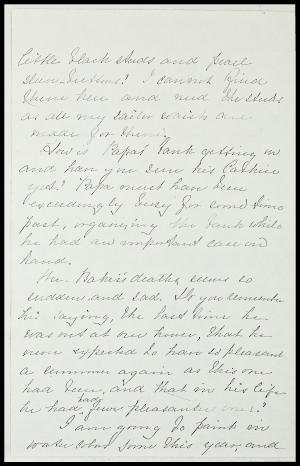 little black studs and pearl
sleeve-buttons? I cannot find
them here and need the studs
as all my        which are
made for them.
How is Papa's bank getting on
and have you seen his Cashier
yet? Papa must have been
exceedingly busy for some time
past, organizing the bank while
he had an important case on
hand.
Mr. Baker's death seems so
sudden and sad. Do you remember
his saying, the last time he
was out at our house, that he
never expected to have so pleasant
a summer again as this one
had been, and that in his life
he had had few pleasanter ones?
I am going to paint in
water colors some this year, and